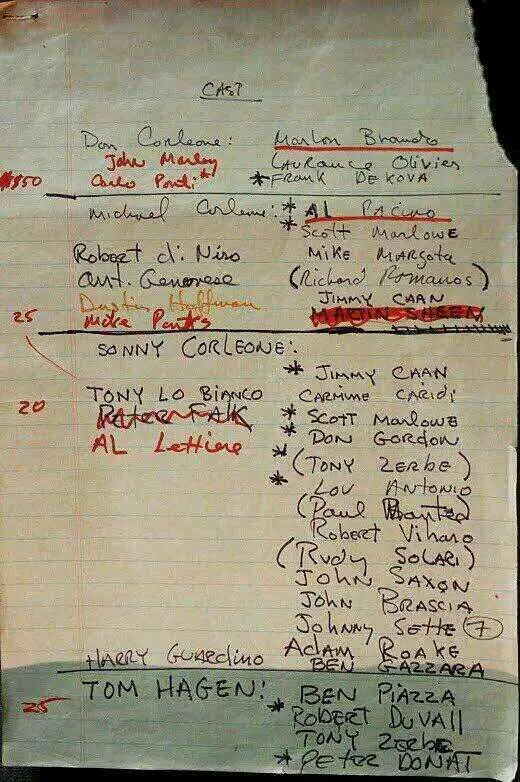 CAST
Don Corleone: Marlon Brando
John Marley Laurance Olivier
Carlo Ponti * FRANK DE KOVA
Michael Corleone: * AL PACINO
* Scott MARLOWE
Robert di Niro MIKE MARGOTA
Ant. Genovese (Richard Romanos)
Dustin Hoffman JIMMY CAAN
25 Mike Parks MARTIN SHEEN
SONNY CORLEONE:
* JIMMY CAAN
TONY LO BIANCO CARMINE CARIDI
20 Peter FALK * SCOTT MARLOWE
AL Lettiere * DON GORDON
* (TONY ZERBE)
* LOU ANTONIO
(Paul Banteo)
Robert Viharo
(RUDY SOLARI)
JOHN SAXON
JOHN BRASCIA
Johnny SETTE 7
Adam ROAKE
HARRY GUARDINO BEN GAZZARA
TOM HAGEN: BEN PIAZZA
25 * ROBERT DUVAll
TONY ZERBE
* PETER DONAT